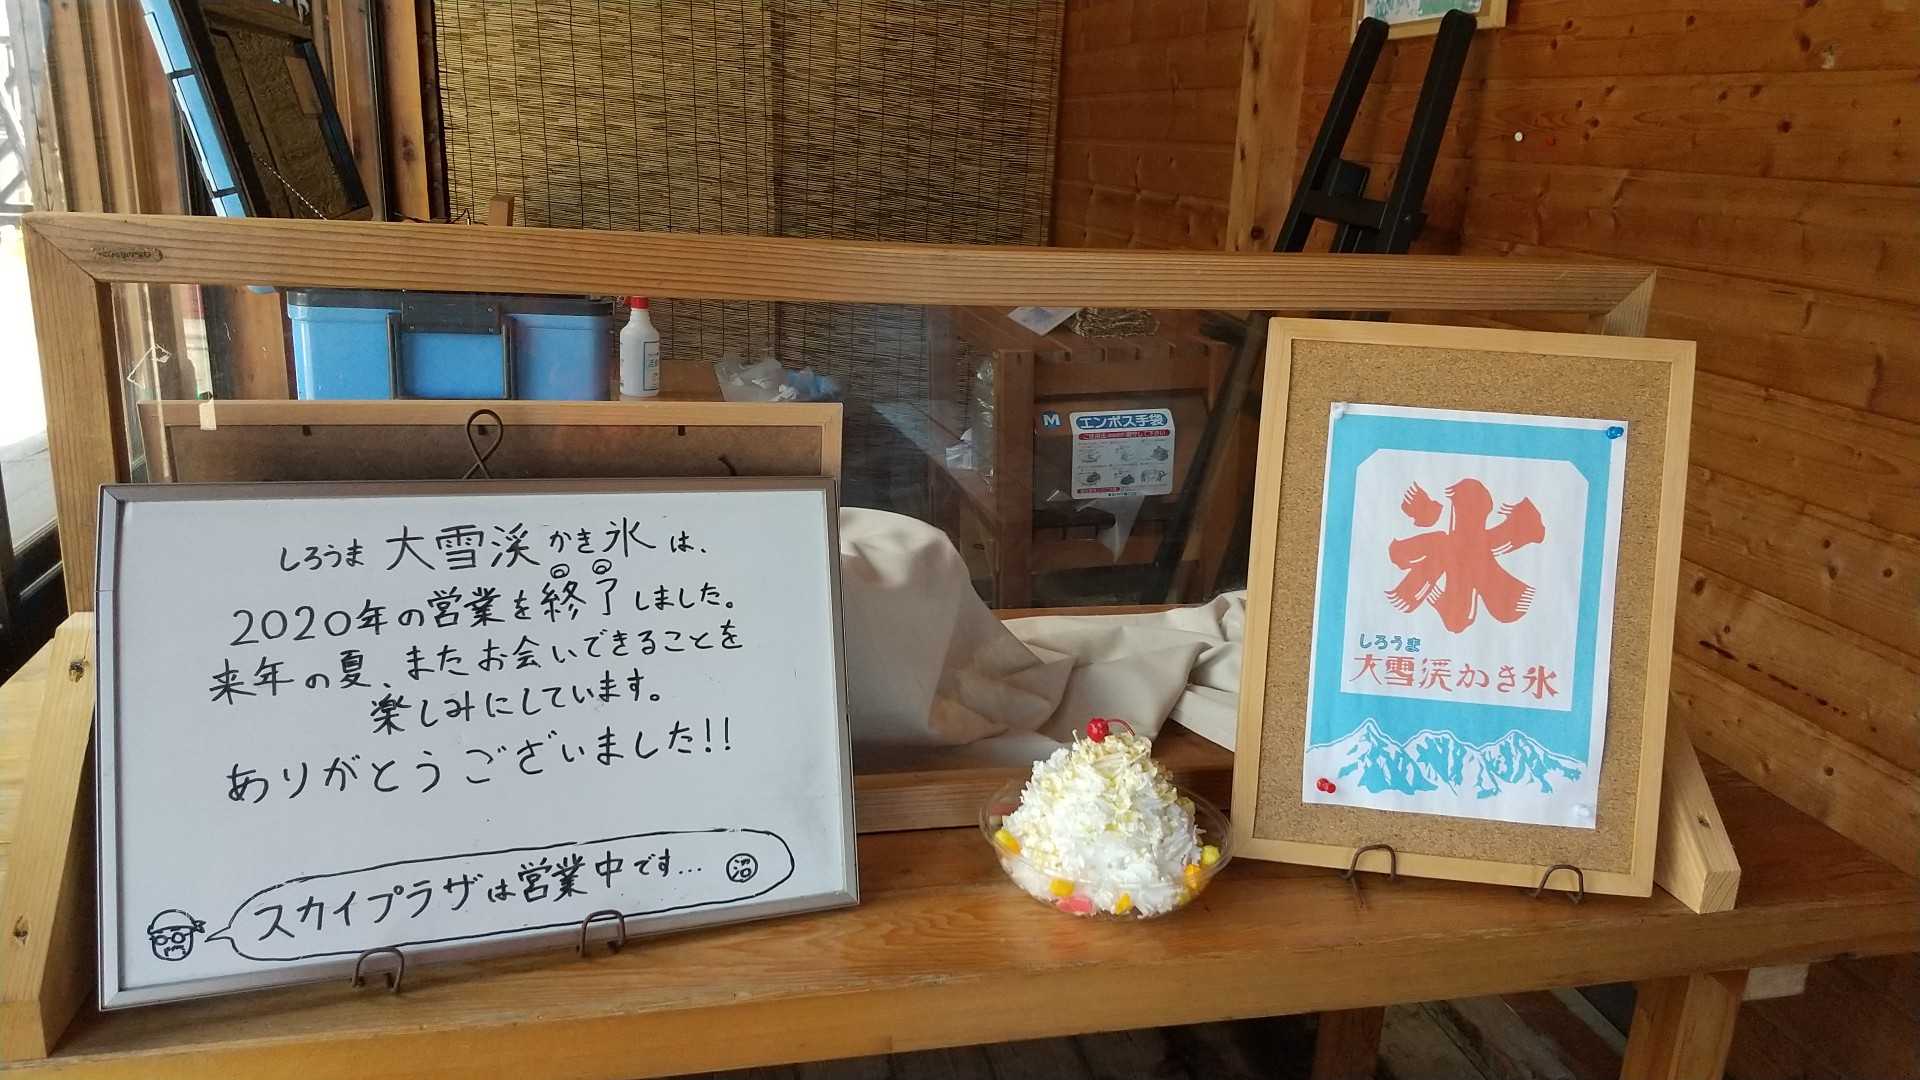 しろうま 大雪渓 かき氷 は、
2020年の営業を終了しました。
来年の夏、またお会いできることを
楽しみにしています。
ありがとうございました!!
スカイプラザは営業中です… 沼
M エンボス手袋
氷
しろうま
大雪渓かき氷